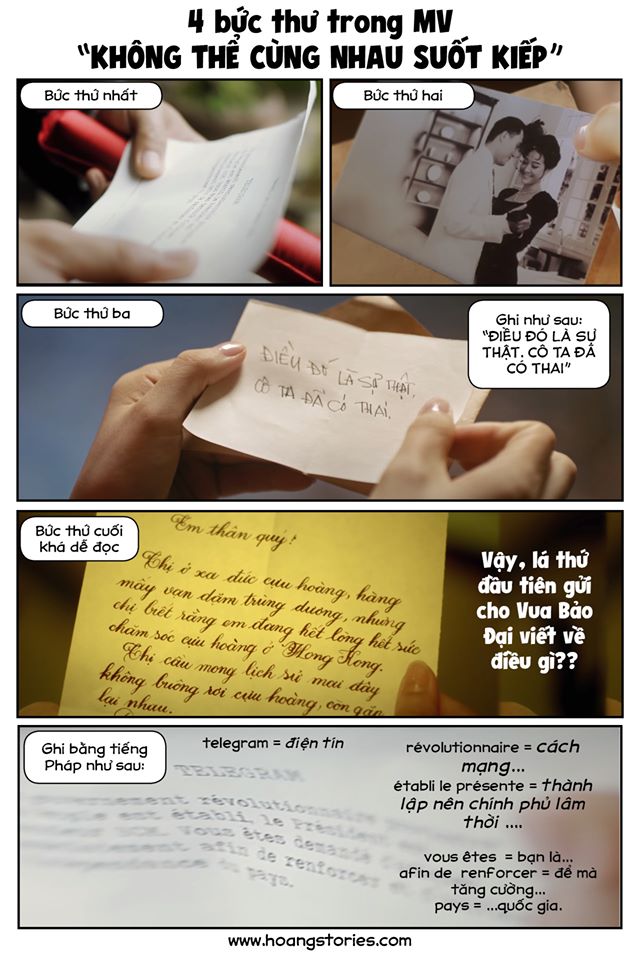 4 bức thư trong MV
“KHÔNG THỂ CÙNG NHAU SUỐT KIẾP”
Bức thứ nhất
Bức thứ hai
TELEGRAM
Bức thứ ba
Ghi như sau:
“ĐIỀU ĐÓ LÀ SỰ
THẬT. CÔ TA ĐÃ
CÓ THAI”
ĐIỀU ĐÓ LÀ SỰ THẬT,
CÔ TA ĐÃ CÓ THAI.
Bức thứ cuối
khá dễ đọc
Em thân quý!
Chị ở xa đức cựu hoàng, hàng
mấy vạn dặm trùng dương, nhưng
chị biết rằng em đang hết lòng hết sức
chăm sóc cựu hoàng ở Hong Kong.
Chị cầu mong lịch sử mai đây
không buông rơi cựu hoàng, còn gặp
lại nhau.
Vậy, lá thứ
đầu tiên gửi
cho Vua Bảo
Đại viết về
điều gì??
Ghi bằng tiếng
Pháp như sau:
telegram = điện tín
TELEGRAM
révolutionnaire
est établi, le
Vous êtes demandé
afin de renforcer
pays.
révolutionnaire = cách
mạng...
établi le présente = thành
lập nên chính phủ lâm
thời ....
vous êtes = bạn là...
afin de renforcer = để mà
tăng cường...
pays = ...quốc gia.
www.hoangstories.com